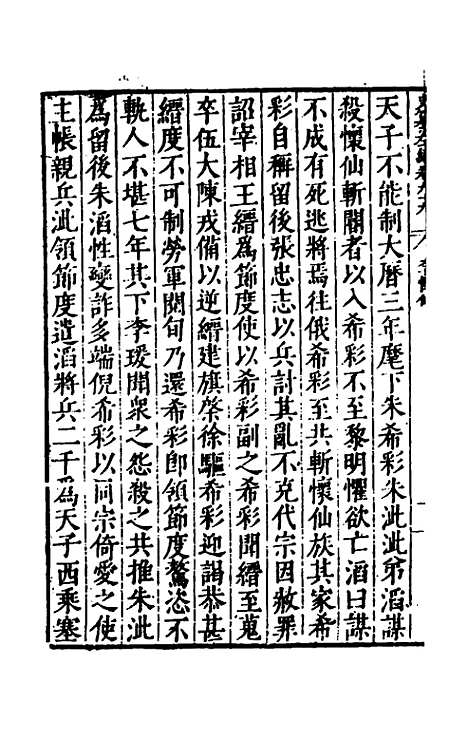 天子不能制大曆三年麾下朱希彩朱泚泚弟滔謀
殺懷仙斬閽者以入希彩不至黎明懼欲亡滔曰謀
不成有死逃將焉往俄希彩至共斬懷仙族其家希
彩自稱留後張忠志以兵討其亂不克代宗因赦罪
詔宰相王縉爲節度使以希彩副之希彩聞縉至蒐
卒伍大陳戎備以逆縉建旗棨徐驅希彩迎謁恭甚
縉度不可制勞軍閱旬乃還希彩卽領節度驁恣不
軌人不堪七年其下李瑗閒衆之怨殺之共推朱泚
爲留後朱滔性變詐多端倪希彩以同宗倚愛之使
主帳親兵泚領節度遣滔將兵二千爲天子西乘塞